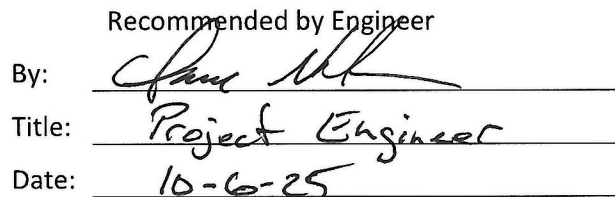 Recommended by Engineer
By:
Title: Project Engineer
Date: 10-6-25